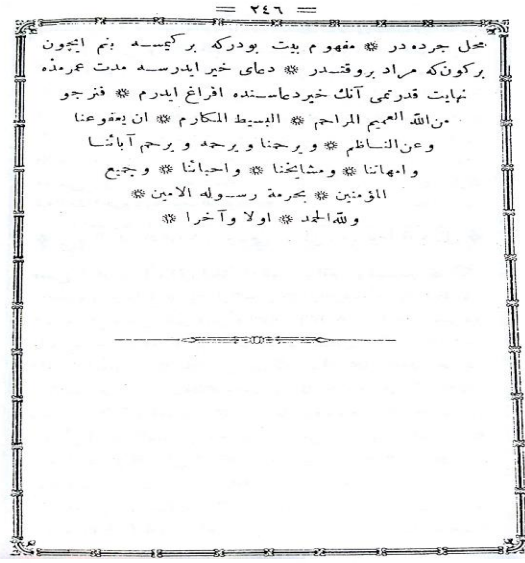 = ٢٤٦ =
محل جرده در ❋ مفهوم بيت بودركه بر كيمسه بنم ايچون
بر كون كه مراد بر وقتدر ❋ دعاى خير ايدرسه مدت عمرمده
نهايت قدرتمى آنك خير دعاسنده افراغ ايدرم ❋ فنرجو
من الله العميم المراحم ❋ البسيط المكارم ❋ ان يعفو عنا
وعن الناظم ❋ و يرحمنا و يرحمه و يرحم آبائنا
وامهاتنا ❋ ومشايخنا ❋ واحبائنا ❋ وجميع
المؤمنين ❋ بحرمة رسوله الامين ❋
ولله الحمد ❋ اولا وآخرا ❋